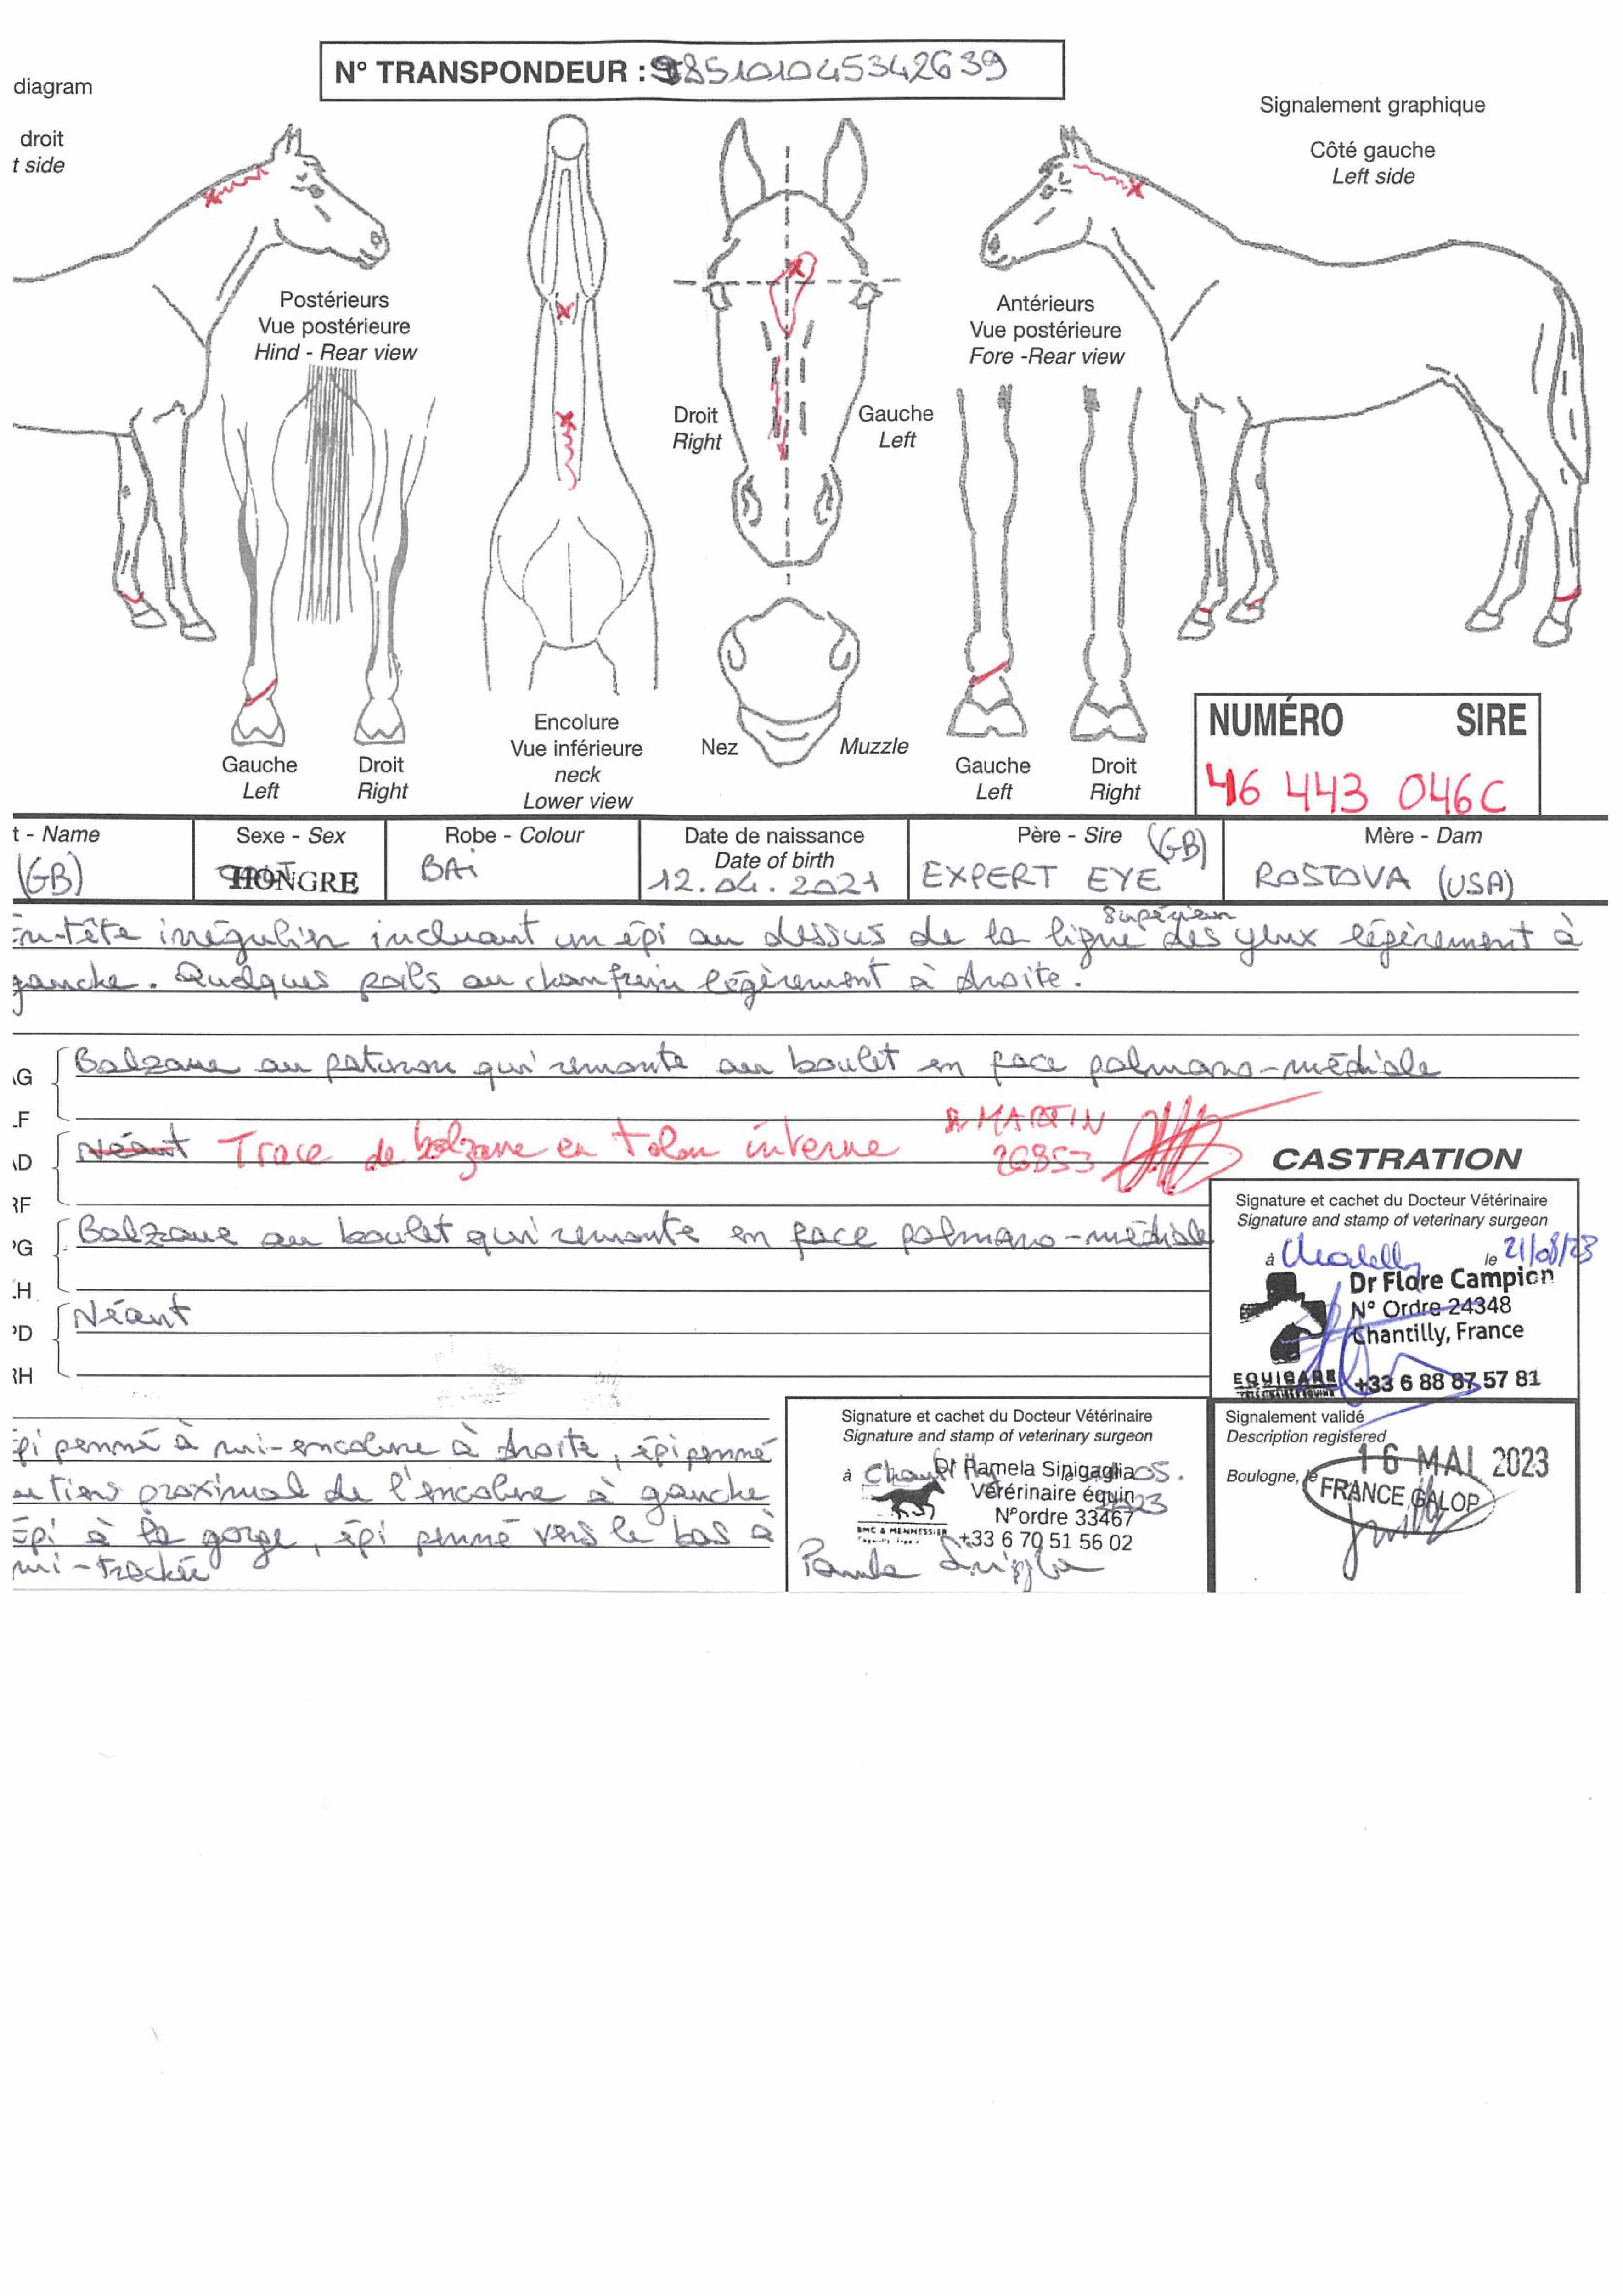 N° TRANSPONDEUR : 985101045342639
diagram
Signalement graphique
droit
t side
Côté gauche
Left side
Postérieurs
Vue postérieure
Hind - Rear view
Antérieurs
Vue postérieure
Fore -Rear view
Droit
Right
Gauche
Left
Gauche
Left
Droit
Right
Encolure
Vue inférieure
neck
Lower view
Nez
Muzzle
Gauche
Left
Droit
Right
NUMÉRO SIRE
46 443 046C
t - Name
(GB)
Sexe - Sex
HONGRE
Robe - Colour
BAi
Date de naissance
Date of birth
12.04.2021
Père - Sire
(GB)
EXPERT EYE
Mère - Dam
ROSTOVA (USA)
En-tête irrégulier incluant un épi au dessus de la ligne supérieur des yeux légèrement à
gauche. Quelques poils au chanfrein légèrement à droite.
AG
LF
Balzane au paturon qui remonte au boulet en face palmaro-médiale
AD
RF
Néant Trace de balzane en talon interne
Dr MARTIN
26853
PG
LH
Balzane au boulet qui remonte en face palmaro-médiale
PD
RH
Néant
CASTRATION
Signature et cachet du Docteur Vétérinaire
Signature and stamp of veterinary surgeon
à le 21/08/23
Dr Flore Campion
N° Ordre 24348
Chantilly, France
EQUICARE
+33 6 88 87 57 81
épi penné à mi-encolure à droite, épi penné
au tiers proximal de l'encolure à gauche
Épi à la gorge, épi penné vers le bas à
mi-trachée
Signature et cachet du Docteur Vétérinaire
Signature and stamp of veterinary surgeon
à Chantilly 05.
Dr Pamela Sinigaglia
Vétérinaire équin
N°ordre 33467
BMC & MENNESSIER
+33 6 70 51 56 02
Signalement validé
Description registered
Boulogne, le
16 MAI 2023
FRANCE GALOP